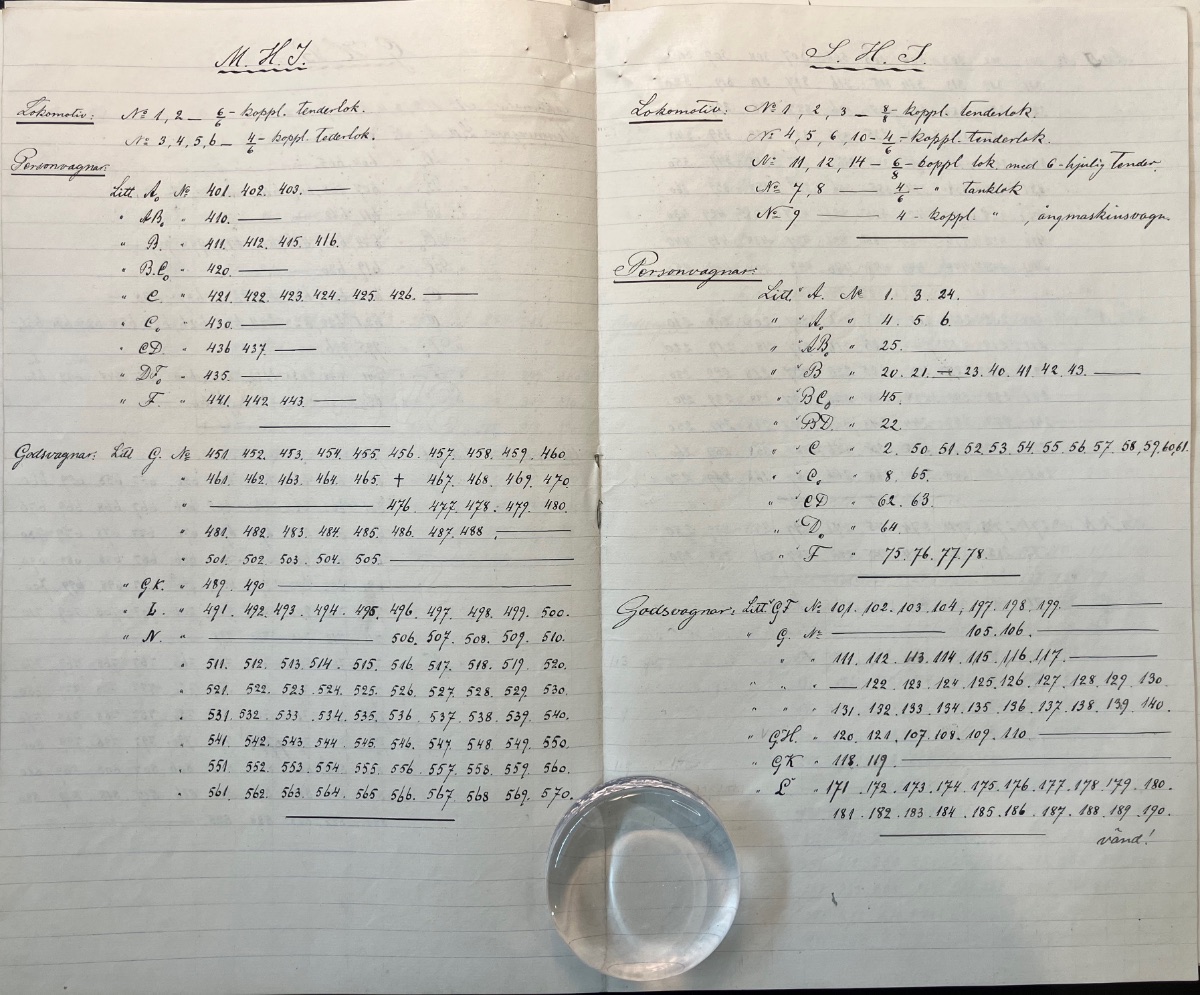 M. H. J.
Lokomotiv: No 1, 2 — 6/6 - koppl. tenderlok.
No 3, 4, 5, 6 — 4/6 - koppl. tederlok.
Personvagnar:
Litt. Ao No 401. 402. 403. —
" ABo " 410. —
" B. " 411. 412. 415. 416.
" B.Co " 420. —
" C. " 421. 422. 423. 424. 425. 426. —
" Co " 430. —
" CD. " 436 437. —
" DFo " 435. —
" F. " 441. 442. 443. —
Godsvagnar: Litt. G. No 451. 452. 453. 454. 455 456. 457. 458. 459. 460
" 461. 462. 463. 464. 465. + 467. 468. 469. 470
" — 476. 477. 478. 479. 480.
" 481. 482. 483. 484. 485. 486. 487. 488. —
" 501. 502. 503. 504. 505. —
" GK. " 489. 490 —
" L. " 491. 492. 493. 494. 495. 496. 497. 498. 499. 500.
" N. " — 506. 507. 508. 509. 510.
" 511. 512. 513. 514. 515. 516. 517. 518. 519. 520.
" 521. 522. 523 524. 525. 526. 527. 528. 529. 530.
" 531. 532. 533. 534. 535. 536. 537. 538. 539. 540.
" 541. 542. 543. 544. 545. 546. 547. 548. 549. 550.
" 551. 552. 553. 554. 555. 556. 557. 558. 559. 560.
" 561. 562. 563. 564. 565 566. 567. 568 569. 570.
S. H. J.
Lokomotiv: No 1, 2, 3 — 8/8 - koppl. tenderlok.
No 4, 5, 6, 10 - 4/6 - koppl. tenderlok.
No 11, 12, 14 - 6/8 - koppl lok. med 6-hjulig tender.
No 7, 8 — 4/6 - " tanklok
No 9 — 4 - koppl. " , ångmaskinsvagn.
Personvagnar:
Litt. A. No 1. 3. 24.
" Ao " 4. 5. 6.
" ABo " 25. —
" B " 20. 21. — 23. 40. 41. 42. 43. —
" BCo " 45.
" BD. " 22.
" C " 2. 50. 51. 52. 53. 54. 55. 56. 57. 58, 59. 60, 61.
" Co " 8. 65.
" CD " 62. 63.
" Do " 64.
" F " 75. 76. 77. 78.
Godsvagnar: Litt. GF No 101. 102. 103. 104, 197. 198. 199. —
" G. No — 105. 106. —
" " 111. 112. 113. 114. 115. 116. 117. —
" " " — 122. 123. 124. 125. 126. 127. 128. 129. 130
" " " 131. 132. 133. 134. 135. 136. 137. 138. 139. 140.
" GH. " 120. 121. 107. 108. 109. 110 —
" GK " 118. 119. —
" L " 171. 172. 173. 174. 175. 176. 177. 178. 179. 180.
181. 182. 183. 184. 185. 186. 187. 188. 189. 190.
vänd!